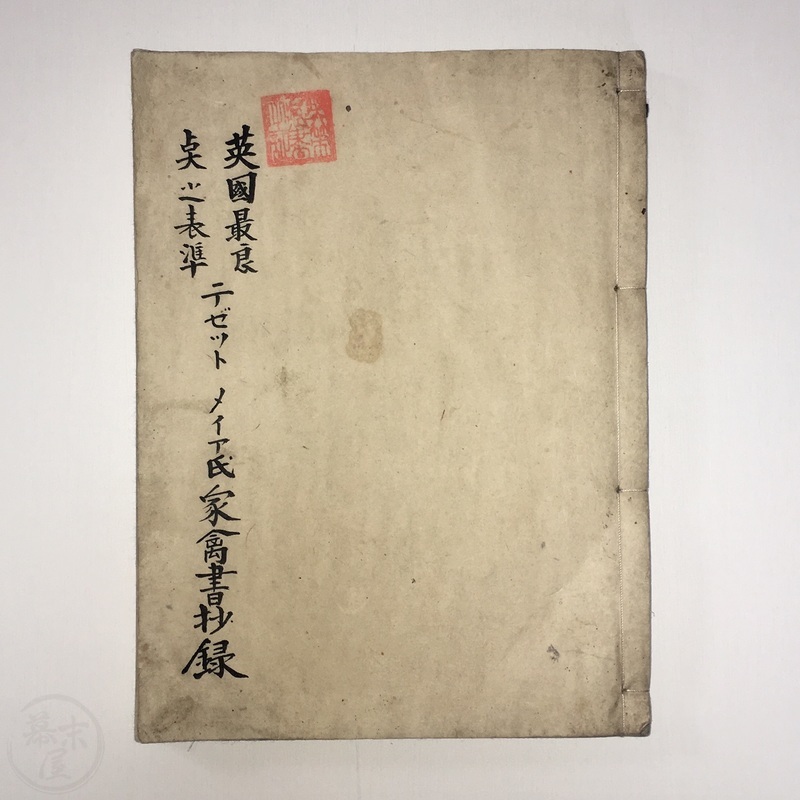 英國最良
奌之表準
テゼットメイア氏家禽書抄録
幕末屋